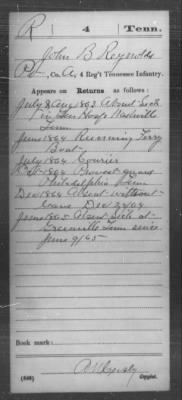 R | 4 | Tenn.
John B Reynolds
Pvt, Co. A, 4 Reg't Tennessee Infantry.
Appears on Returns as follows:
July & Aug 1863 Absent Sick
in Gen Hosp Nashville
Tenn
June 1864 Running Ferry
Boat
July 1864 Courier
1864 Provost guard
Philadelphia Tenn
Dec 1864 Absent without
leave Dec 24/64
June 1865 Absent Sick at
Greenville Tenn since
June 9/65
Book mark:
(546) Copyist.